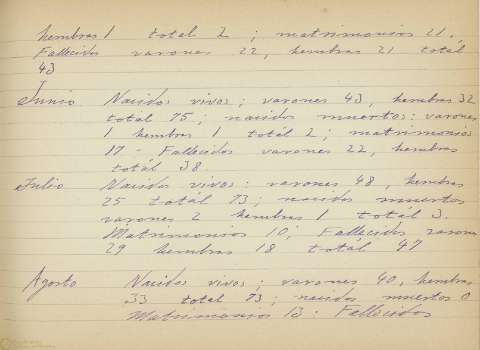 hembras 1 total 2; matrimonios 21.
Fallecidos varones 22, hembras 21 total
43
Junio Nacidos vivos; varones 43, hembras 32
total 75; nacidos muertos: varones
1 hembras 1 total 2; matrimonios
17 - Fallecidos varones 22, hembras
total 38.
Julio Nacidos vivos: varones 48, hembras
25 total 73; nacidos muertos
varones 2 hembras 1 total 3.
Matrimonios 10; Fallecidos varones
29 hembras 18 total 47
Agosto Nacidos vivos; varones 40, hembras
33 total 73; nacidos muertos 0
Matrimonios 13. Fallecidos